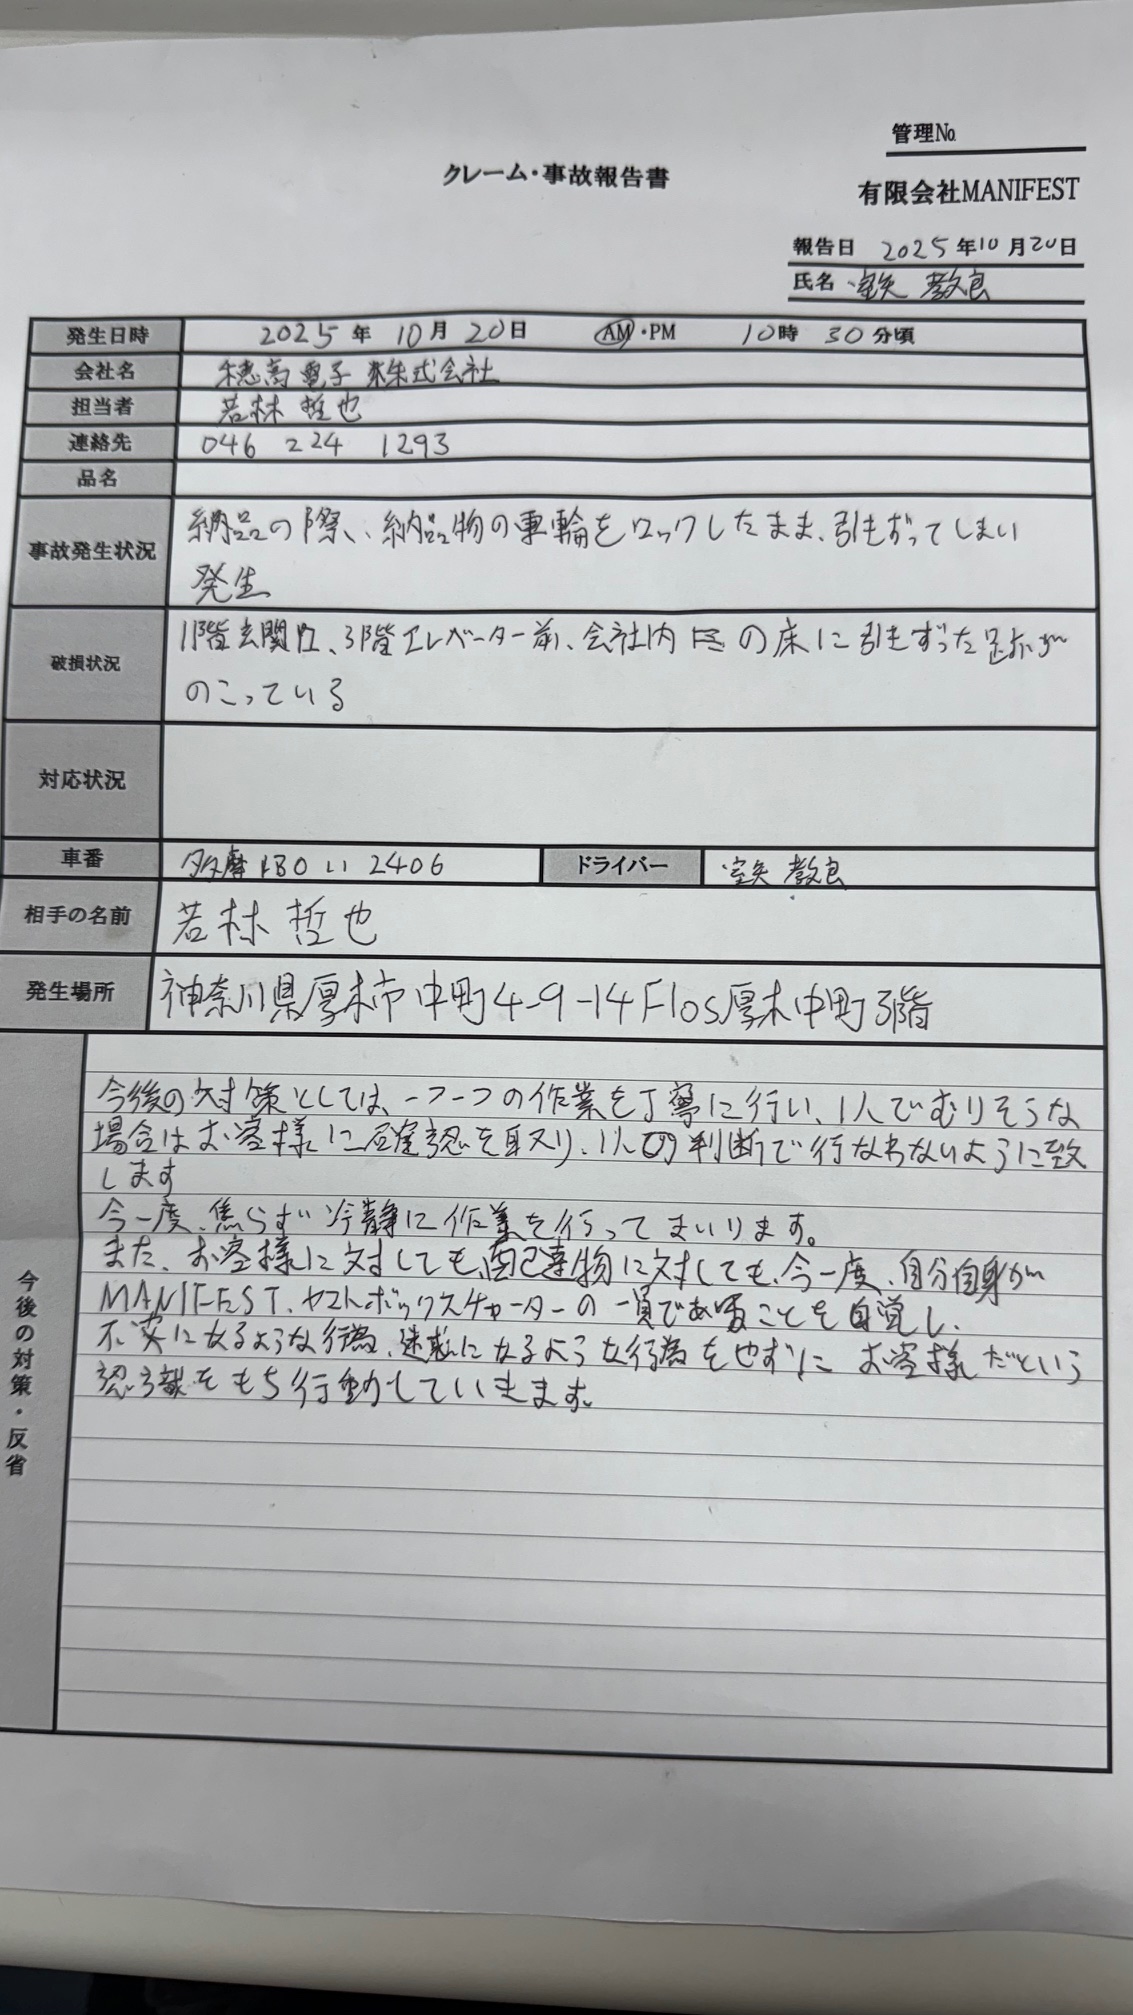 管理№
クレーム・事故報告書
有限会社MANIFEST
報告日 2025年10月20日
氏名 室矢 教良
発生日時 2025年 10月 20日 AM・PM 10時 30分頃
会社名 穂高電子 株式会社
担当者 若林 哲也
連絡先 046 224 1293
品名
事故発生状況 納品の際、納品物の車輪をロックしたまま、引きずってしまい
発生
破損状況 1階玄関口、3階エレベーター前、会社内 の床に引きずった跡が
のこっている
対応状況
車番 多摩 い 2406 ドライバー 室矢 教良
相手の名前 若林 哲也
発生場所 神奈川県厚木市中町4-9-14Flos厚木中町3階
今後の対策・反省
今後の対策としては、一つ一つの作業を丁寧に行い、1人でむりそうな
場合はお客様に確認を取り、1人の判断で行なわないように致
します
今一度、焦らず冷静に作業を行ってまいります。
また、お客様に対しても、配送物に対しても、今一度、自分自身が
MANIFEST、ヤマトボックスチャーターの一員であることを自覚し、
不快になるような行為、迷惑になるような行為をせずに お客様だという
認識をもち行動していきます。